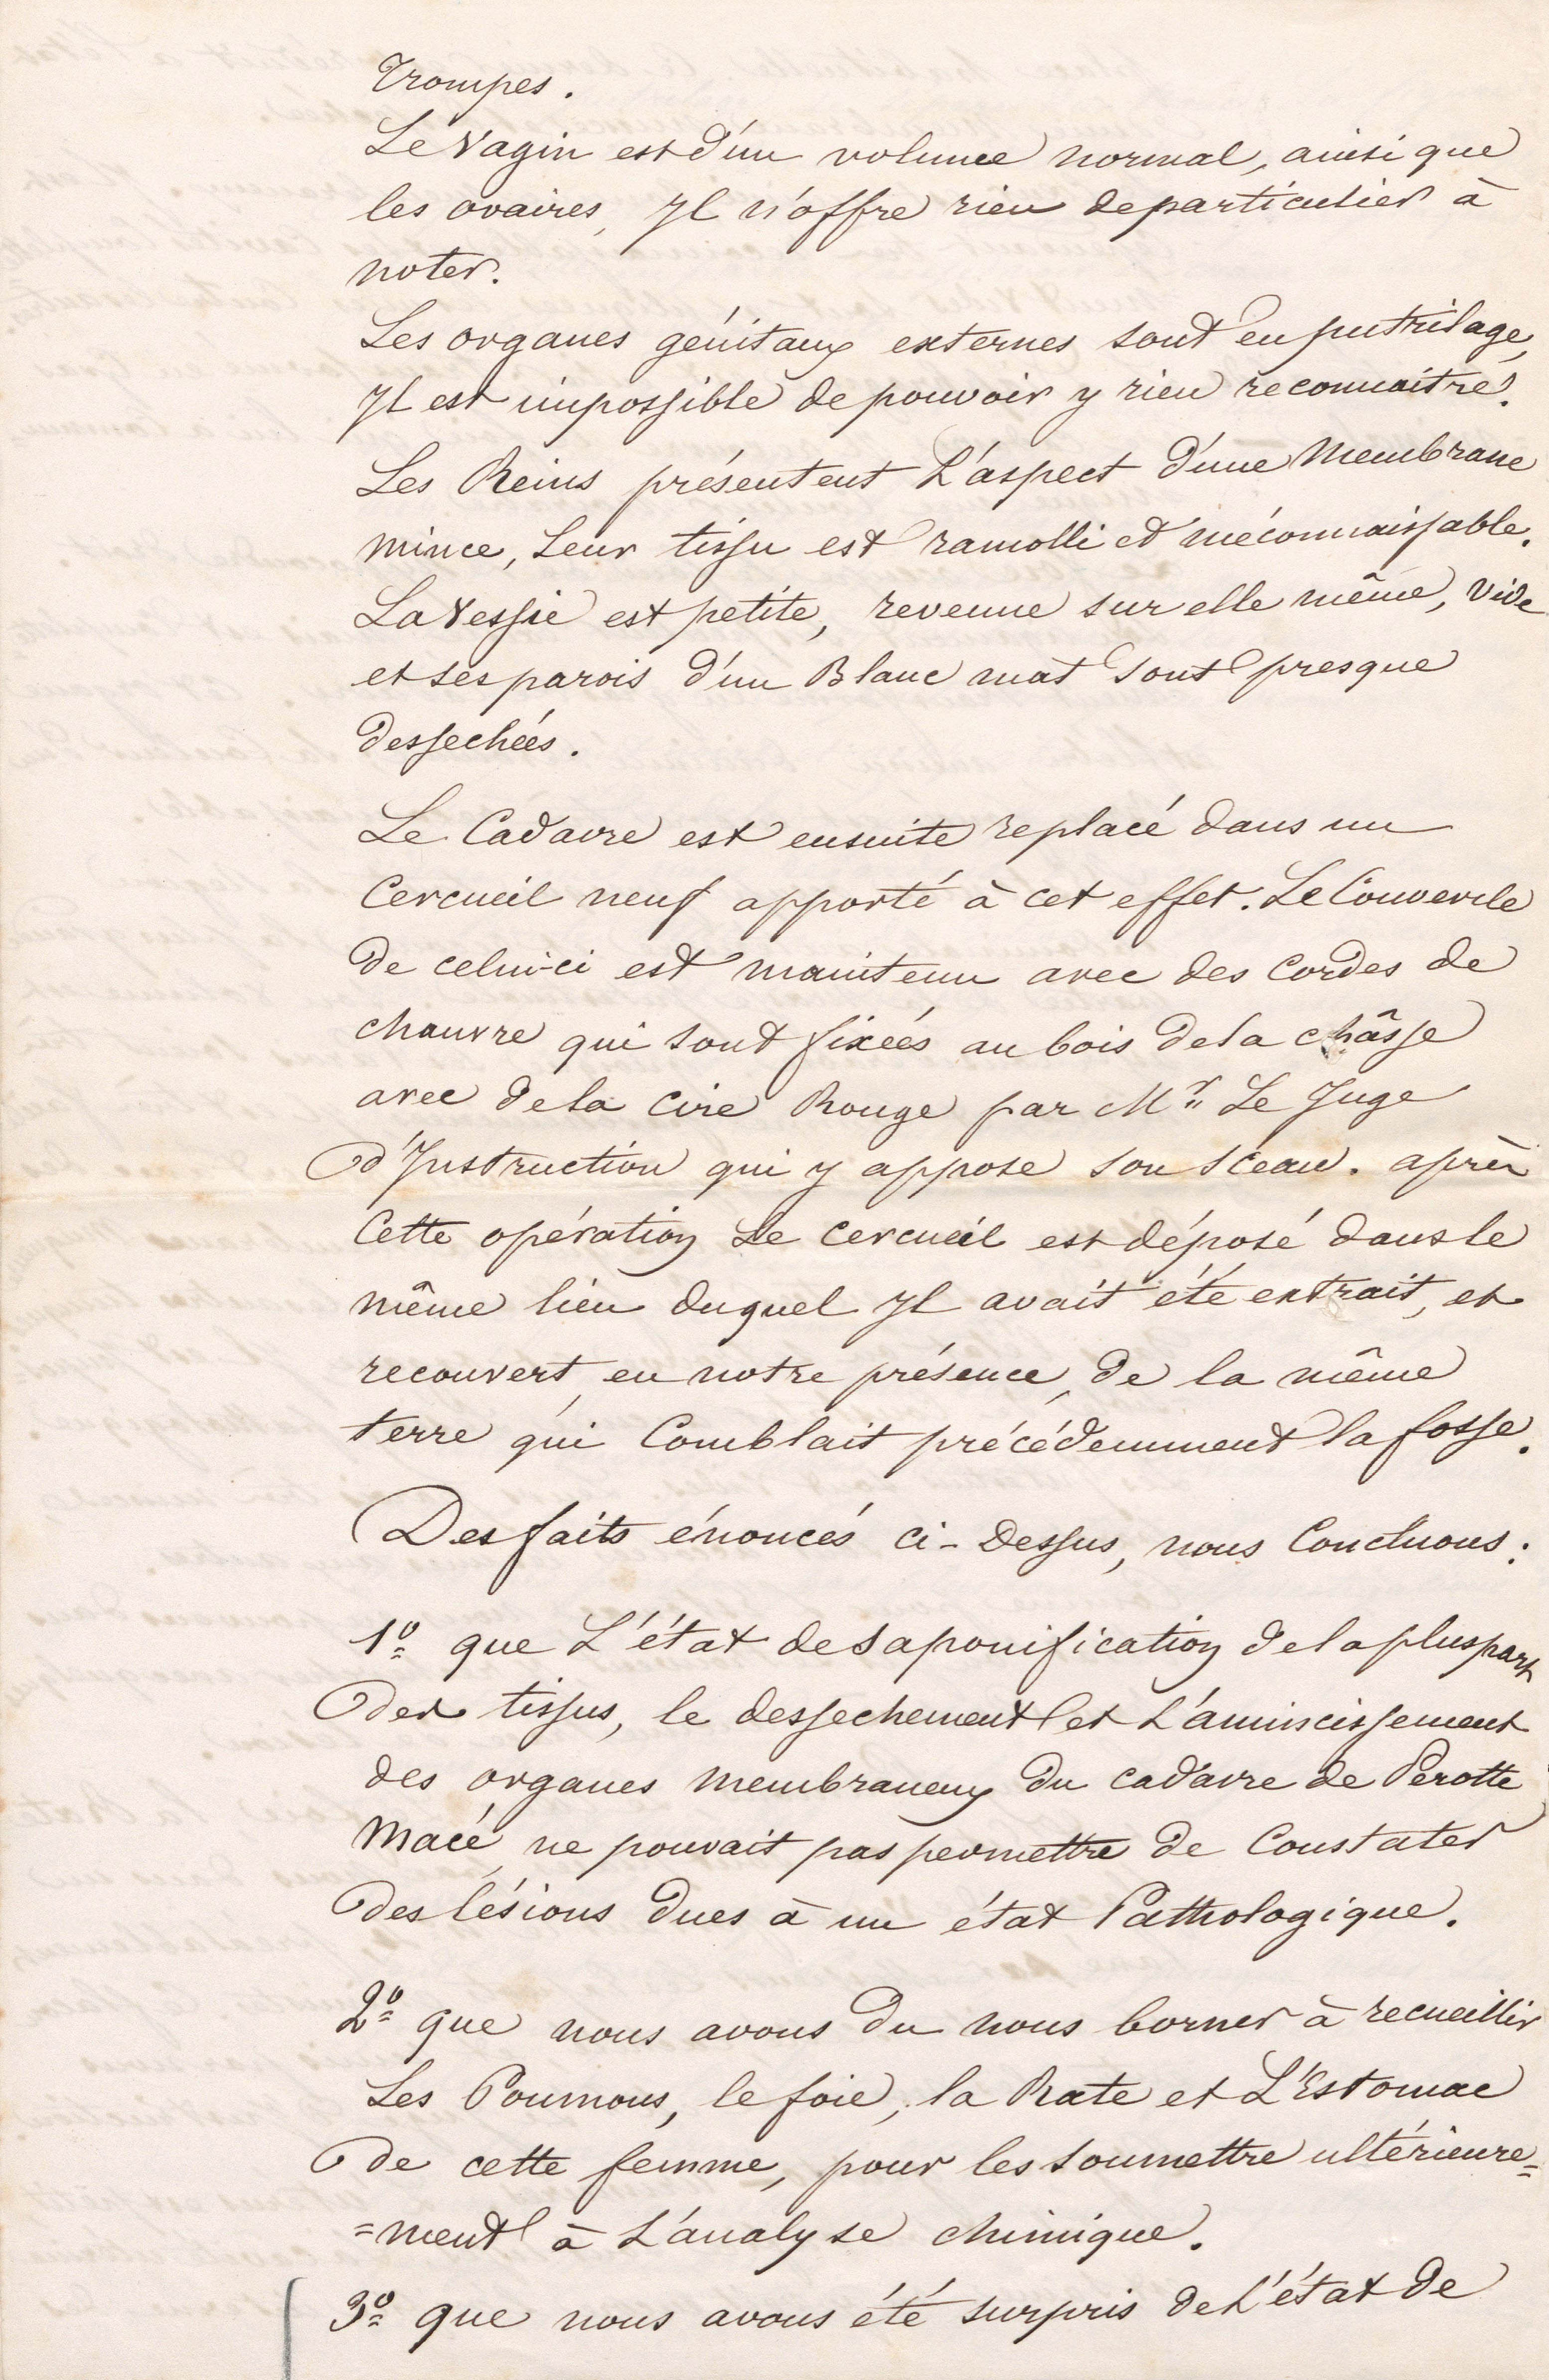 Trompes.
Le Vagin est d'un volume normal, ainsi que
les ovaires, Jl n'offre rien de particulier à
noter.
Les organes génitaux externes sont en putrilage,
Jl est impossible de pouvoir y rien reconnaitre.
Les Reins présentent L'aspect d'une Membrane
mince, Leur tissu est ramolli et méconnaissable.
La Vessie est petite, revenue sur elle même, vide
et ses parois d'un Blanc mat sont presque
dessechées.
Le Cadavre est ensuite replacé dans un
Cercueil neuf apporté à cet effet. Le Couvercle
de celui-ci est maintenu avec des Cordes de
chanvre qui sont fixées au bois de la châsse
avec de la Cire Rouge par Mr Le Juge
d'Jnstruction qui y appose son Sceau. après
Cette opération Le Cercueil est déposé dans le
même lieu duquel Jl avait été extrait, et
recouvert, en notre présence, de la même
terre qui Comblait précédemment la fosse.
Des faits énoncés ci-Dessus, nous Concluons:
1º que L'état de Saponification de la pluspart
des tissus, le dessechement et L'amincissement
des organes membraneux du cadavre de Perotte
Macé, ne pouvait pas permettre de Constater
des lésions dues à un état Pathologique.
2º que nous avons du nous borner à recueillir
Les Poumons, le foie, la Rate et L'Estomac
de cette femme, pour les soumettre ultérieure=
=ment à L'analyse chimique.
3º que nous avons été surpris de L'état de